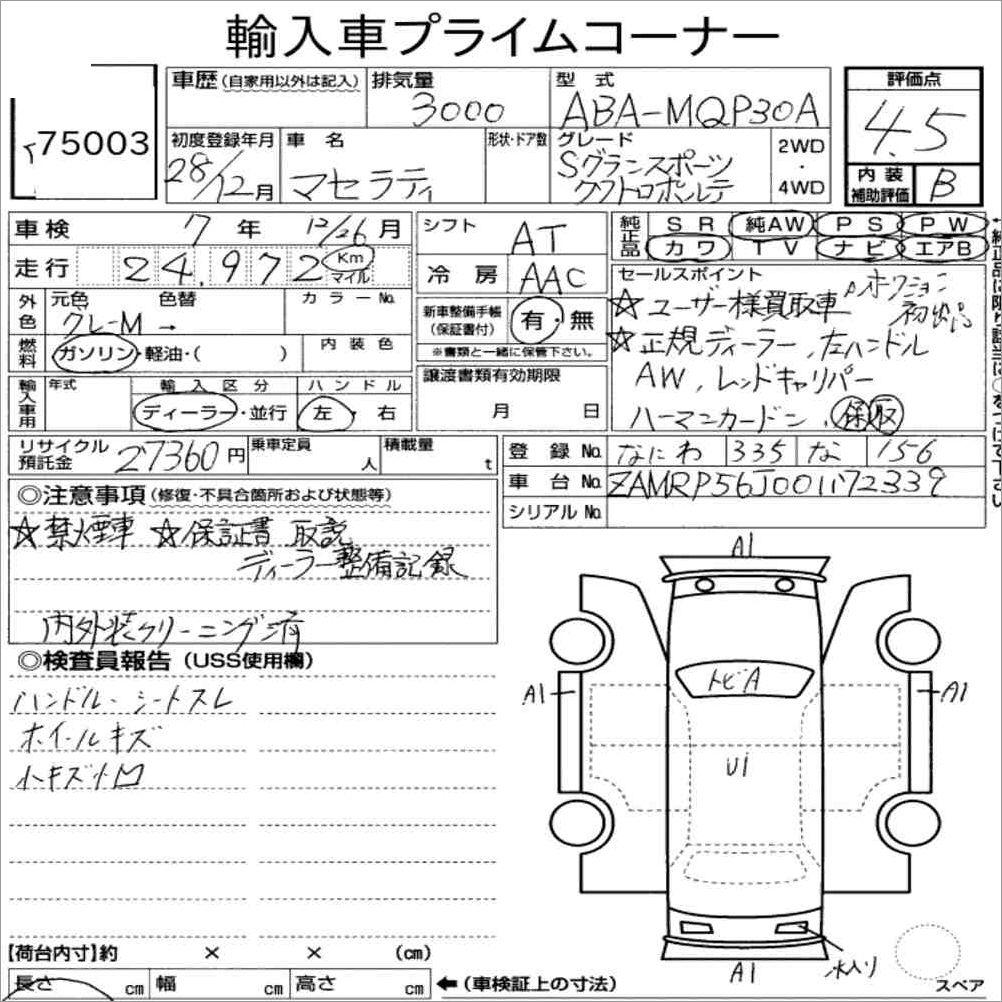 輸入車プライムコーナー
75003
車歴 (自家用以外は記入)
排気量
3000
型式
ABA-MQP30A
評価点
4.5
初度登録年月
28/12月
車名
マセラティ
形状・ドア数
グレード
Sグランスポーツ
クワトロポルテ
2WD
・
4WD
内装
補助評価
B
車検 7年 12/26月
走行 24,972 Km マイル
シフト AT
冷房 AAC
純正品
SR 純AW PS PW
カワ TV ナビ エアB
外色
元色 色替
グレーM →
カラーNo.
燃料
ガソリン・軽油・( )
内装色
新車整備手帳
(保証書付)
有・無
※書類と一緒に保管下さい。
セールスポイント
☆ユーザー様買取車 オークション初出品
☆正規ディーラー、左ハンドル
AW、レッドキャリパー
ハーマンカードン 保 取
輸入車用
年式
輸入区分
ディーラー・並行
ハンドル
左・右
譲渡書類有効期限
月 日
リサイクル
預託金
27360円
乗車定員
人
積載量
t
登録No. なにわ 335 な 156
車台No. ZAMRP56J001172339
シリアルNo.
◎注意事項 (修復・不具合箇所および状態等)
☆禁煙車 ☆保証書 取説
ディーラー整備記録
内外装クリーニング済
◎検査員報告 (USS使用欄)
ハンドル・シートスレ
ホイールキズ
小キズ小凹
A1
A1
A1
トビA
U1
A1
水入り
スペア
【荷台内寸】約 × × (cm)
長さ cm 幅 cm 高さ cm ←(車検証上の寸法)